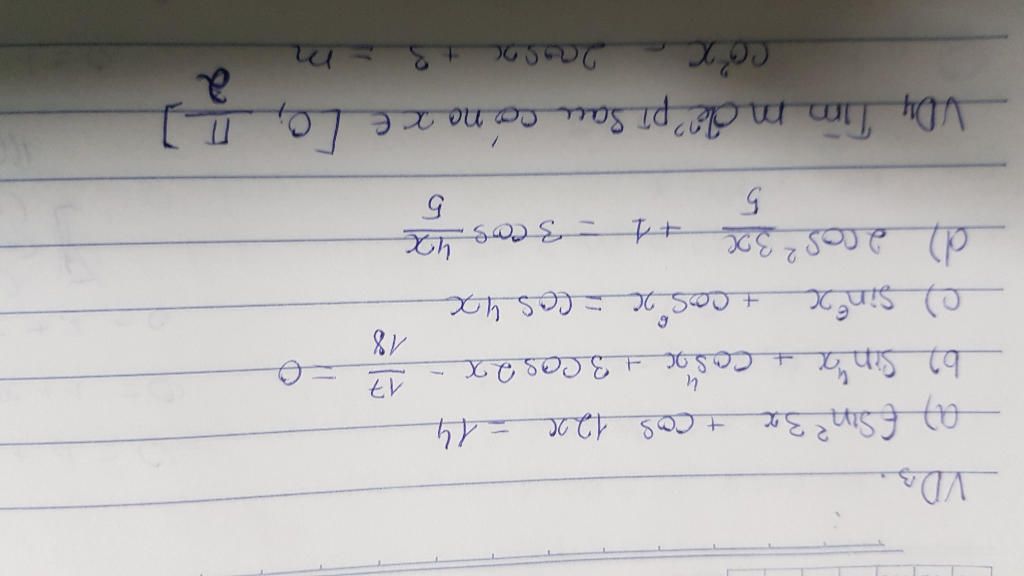 VD3.
a) 6sin² 3x + cos 12x = 14
b) sin⁴x + cos⁴x + 3cos2x - 17/18 = 0
c) sin⁶x + cos⁶x = cos 4x
d) 2cos² 3x/5 + 1 = 3cos 4x/5
VD4 Tìm m để pt sau có no x ∈ [0, π/2]
co²x - 2cosx + 3 = m